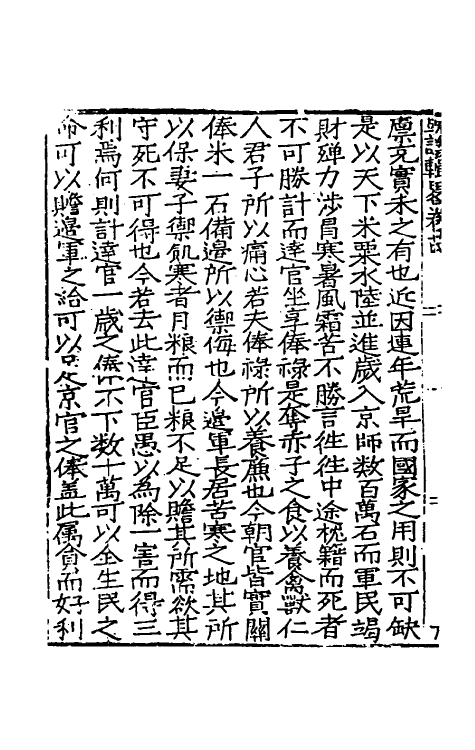 廪充實未之有也近因連年荒旱而國家之用則不可缺
是以天下米粟水陸並進歲入京師数百萬石而軍民竭
財殫力涉冒寒暑風霜苦不勝言徃徃中途枕籍而死者
不可勝計而達官坐享俸祿是奪赤子之食以養禽獸仁
人君子所以痛心若夫俸祿所以養廉也今朝官皆實關
俸米一石備邊所以禦侮也今邊軍長居苦寒之地其所
以保妻子禦飢寒者月粮而已粮不足以贍其所需欲其
守死不可得也今若去此達官臣愚以為除一害而得三
利焉何則計達官一歲之俸不下数十萬可以全生民之
命可以贍邊軍之給可以足京官之俸盖此属貪而好利